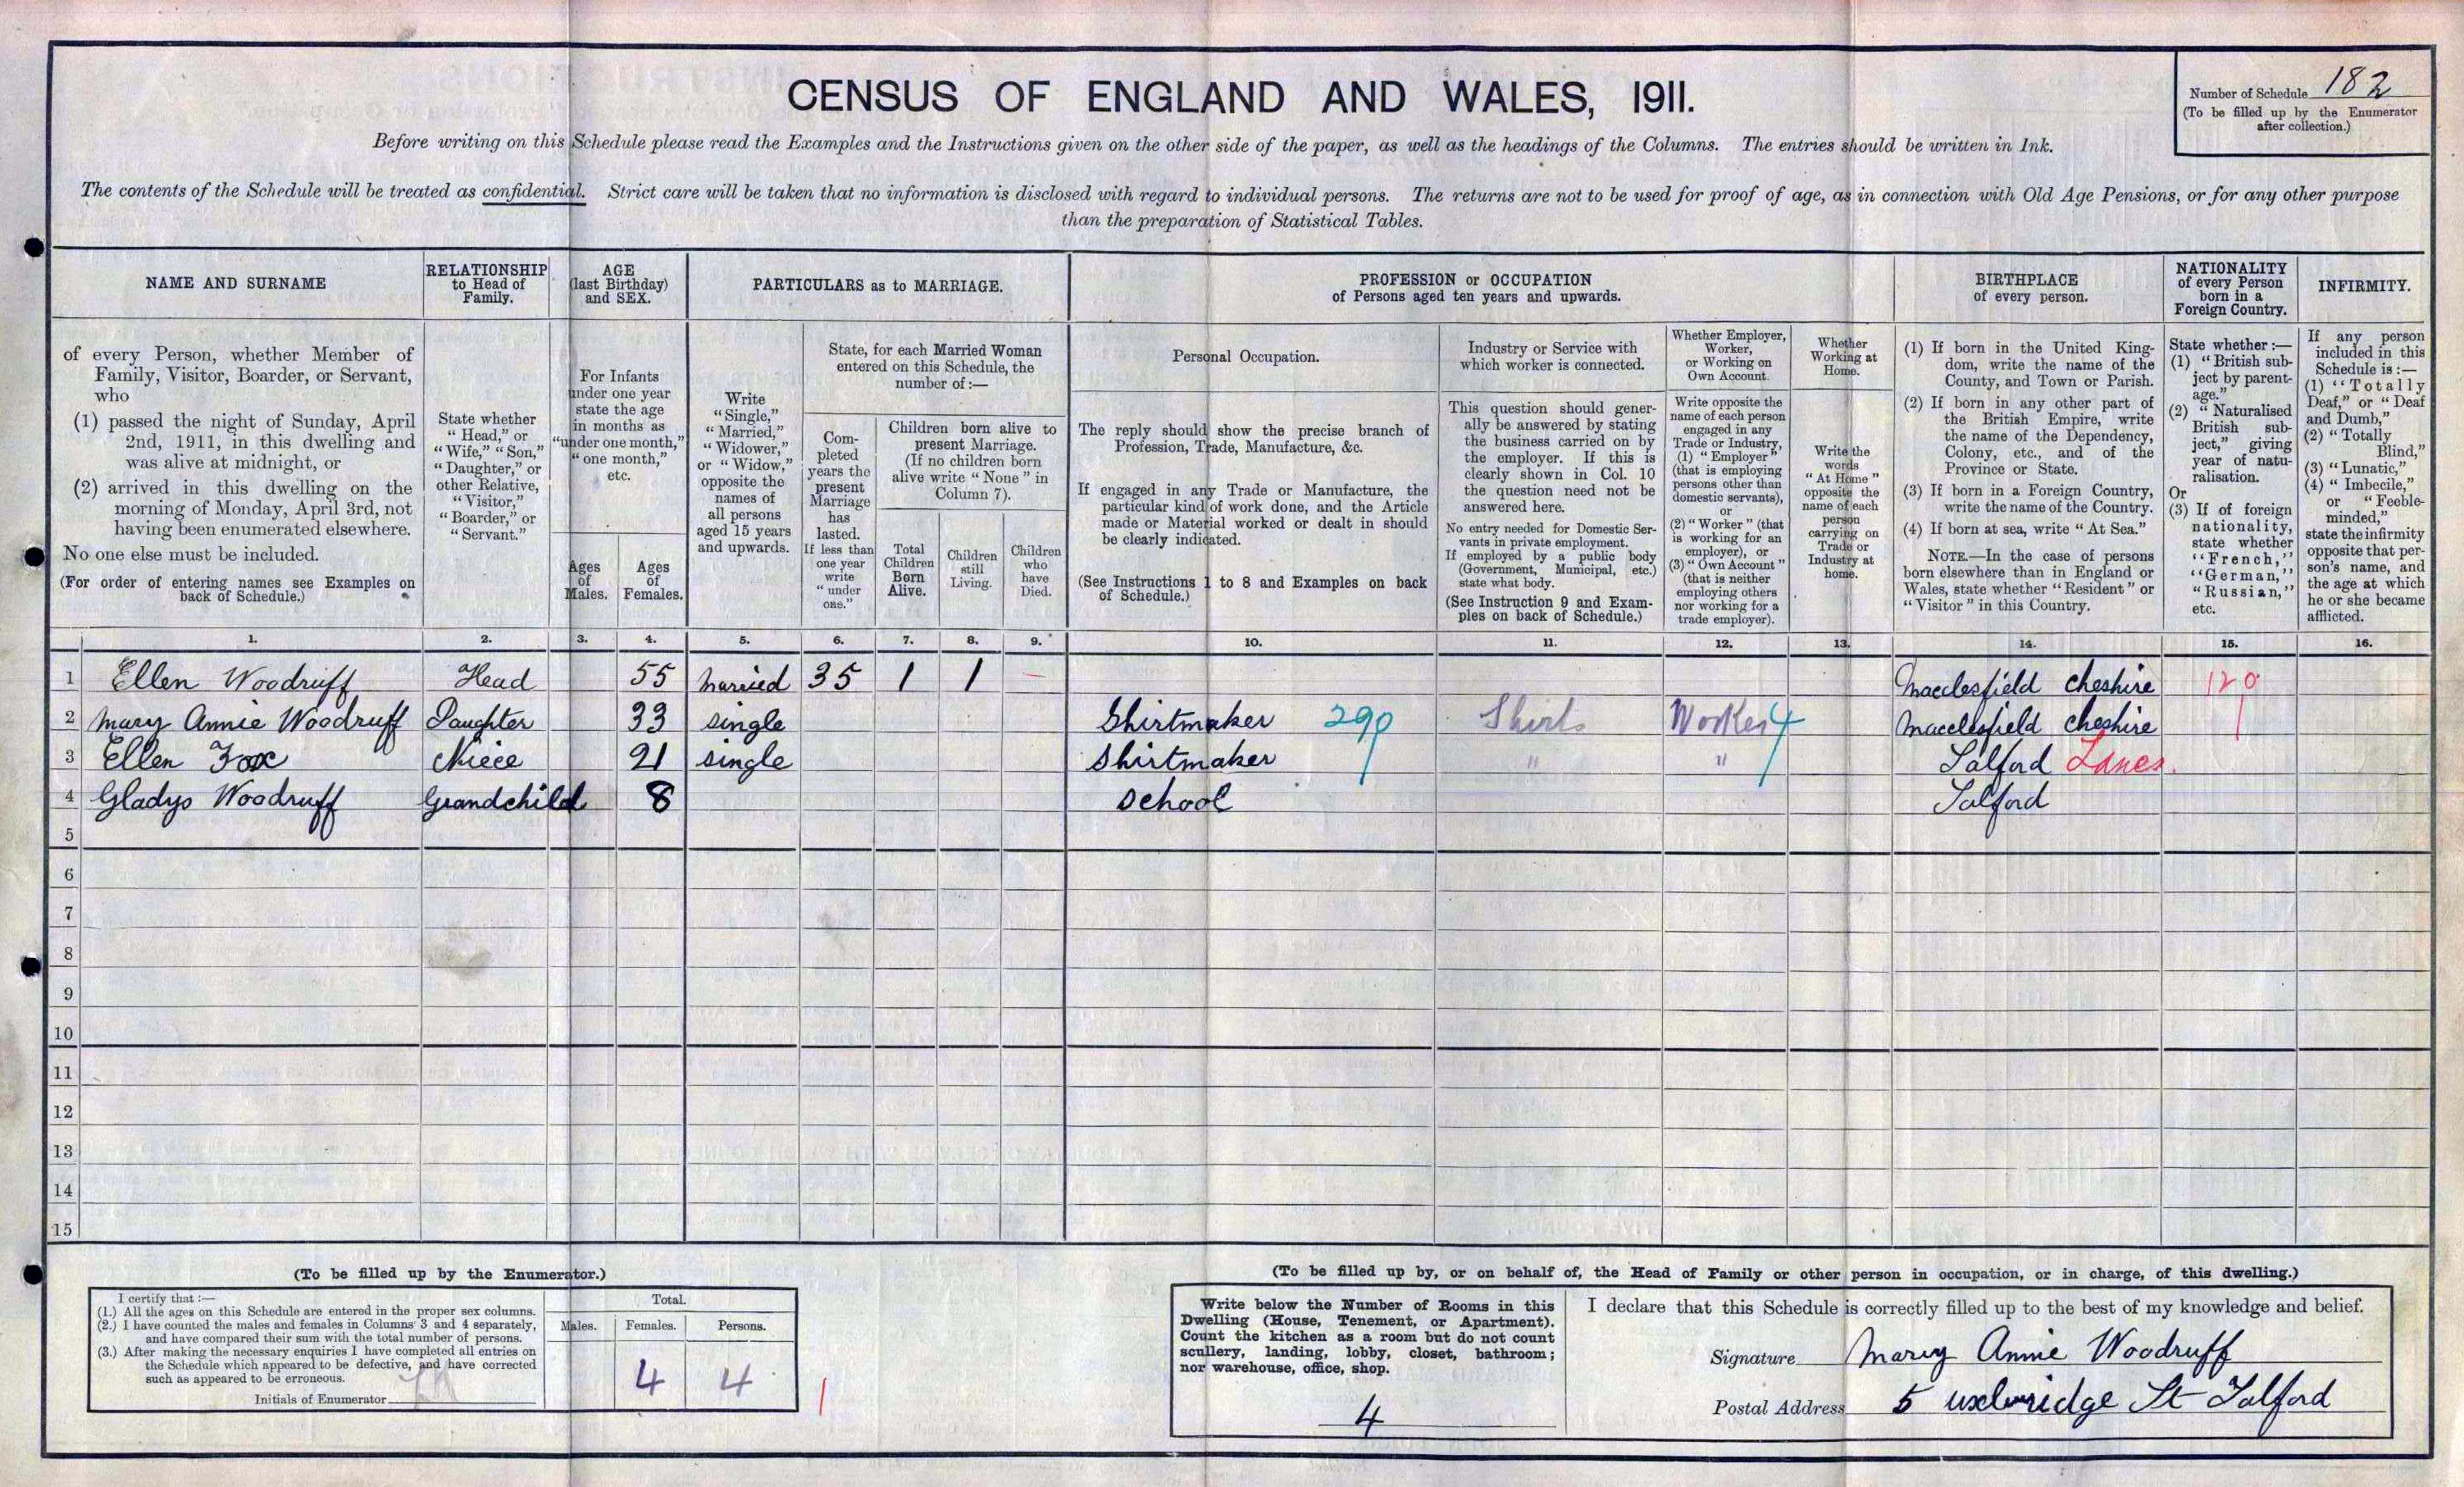 CENSUS OF ENGLAND AND WALES, 1911.
Number of Schedule 182
(To be filled up by the Enumerator
after collection.)
Before writing on this Schedule please read the Examples and the Instructions given on the other side of the paper, as well as the headings of the Columns. The entries should be written in Ink.
The contents of the Schedule will be treated as confidential. Strict care will be taken that no information is disclosed with regard to individual persons. The returns are not to be used for proof of age, as in connection with Old Age Pensions, or for any other purpose
than the preparation of Statistical Tables.
NAME AND SURNAME
of every Person, whether Member of
Family, Visitor, Boarder, or Servant,
who
(1) passed the night of Sunday, April
2nd, 1911, in this dwelling and
was alive at midnight, or
(2) arrived in this dwelling on the
morning of Monday, April 3rd, not
having been enumerated elsewhere.
No one else must be included.
(For order of entering names see Examples on
back of Schedule.)
RELATIONSHIP
to Head of
Family.
State whether
"Head," or
"Wife," "Son,"
"Daughter," or
other Relative,
"Visitor,"
"Boarder," or
"Servant."
AGE
(last Birthday)
and SEX.
For Infants
under one year
state the age
in months as
"under one month,"
"one month,"
etc.
Ages
of
Males.
Ages
of
Females.
PARTICULARS as to MARRIAGE.
Write
"Single,"
"Married,"
"Widower,"
or "Widow,"
opposite the
names of
all persons
aged 15 years
and upwards.
State, for each Married Woman
entered on this Schedule, the
number of :—
Com-
pleted
years the
present
Marriage
has
lasted.
If less than
one year
write
"under
one."
Children born alive to
present Marriage.
(If no children born
alive write "None" in
Column 7).
Total
Children
Born
Alive.
Children
still
Living.
Children
who
have
Died.
PROFESSION or OCCUPATION
of Persons aged ten years and upwards.
Personal Occupation.
The reply should show the precise branch of
Profession, Trade, Manufacture, &c.
If engaged in any Trade or Manufacture, the
particular kind of work done, and the Article
made or Material worked or dealt in should
be clearly indicated.
(See Instructions 1 to 8 and Examples on back
of Schedule.)
Industry or Service with
which worker is connected.
This question should gener-
ally be answered by stating
the business carried on by
the employer. If this is
clearly shown in Col. 10
the question need not be
answered here.
No entry needed for Domestic Ser-
vants in private employment.
If employed by a public body
(Government, Municipal, etc.)
state what body.
(See Instruction 9 and Exam-
ples on back of Schedule.)
Whether Employer,
Worker,
or Working on
Own Account.
Write opposite the
name of each person
engaged in any
Trade or Industry,
(1) "Employer"
(that is employing
persons other than
domestic servants),
or
(2) "Worker" (that
is working for an
employer), or
(3) "Own Account"
(that is neither
employing others
nor working for a
trade employer).
Whether
Working at
Home.
Write the
words
"At Home"
opposite the
name of each
person
carrying on
Trade or
Industry at
home.
BIRTHPLACE
of every person.
(1) If born in the United King-
dom, write the name of the
County, and Town or Parish.
(2) If born in any other part of
the British Empire, write
the name of the Dependency,
Colony, etc., and of the
Province or State.
(3) If born in a Foreign Country,
write the name of the Country.
(4) If born at sea, write "At Sea."
NOTE.—In the case of persons
born elsewhere than in England or
Wales, state whether "Resident" or
"Visitor" in this Country.
NATIONALITY
of every Person
born in a
Foreign Country.
State whether :—
(1) "British sub-
ject by parent-
age."
(2) "Naturalised
British sub-
ject," giving
year of natu-
ralisation.
Or
(3) If of foreign
nationality,
state whether
"French,"
"German,"
"Russian,"
etc.
INFIRMITY.
If any person
included in this
Schedule is :—
(1) "Totally
Deaf," or "Deaf
and Dumb,"
(2) "Totally
Blind,"
(3) "Lunatic,"
(4) "Imbecile,"
or "Feeble-
minded,"
state the infirmity
opposite that per-
son's name, and
the age at which
he or she became
afflicted.
1. 2. 3. 4. 5. 6. 7. 8. 9. 10. 11. 12. 13. 14. 15. 16.
1 Ellen Woodruff Head 55 Married 35 1 1 — Macclesfield cheshire 120
2 Mary Annie Woodruff Daughter 33 single Shirtmaker 290 Shirts Worker 4 Macclesfield cheshire
3 Ellen Fox Niece 21 single Shirtmaker " " Salford Lancs.
4 Gladys Woodruff Grandchild 8 school Salford
5
6
7
8
9
10
11
12
13
14
15
(To be filled up by the Enumerator.)
I certify that :—
(1.) All the ages on this Schedule are entered in the proper sex columns.
(2.) I have counted the males and females in Columns 3 and 4 separately,
and have compared their sum with the total number of persons.
(3.) After making the necessary enquiries I have completed all entries on
the Schedule which appeared to be defective, and have corrected
such as appeared to be erroneous.
Initials of Enumerator
Total.
Males. Females. Persons.
4 4
(To be filled up by, or on behalf of, the Head of Family or other person in occupation, or in charge, of this dwelling.)
Write below the Number of Rooms in this
Dwelling (House, Tenement, or Apartment).
Count the kitchen as a room but do not count
scullery, landing, lobby, closet, bathroom;
nor warehouse, office, shop.
4
I declare that this Schedule is correctly filled up to the best of my knowledge and belief.
Signature Mary Annie Woodruff
Postal Address 5 uxbridge St Salford